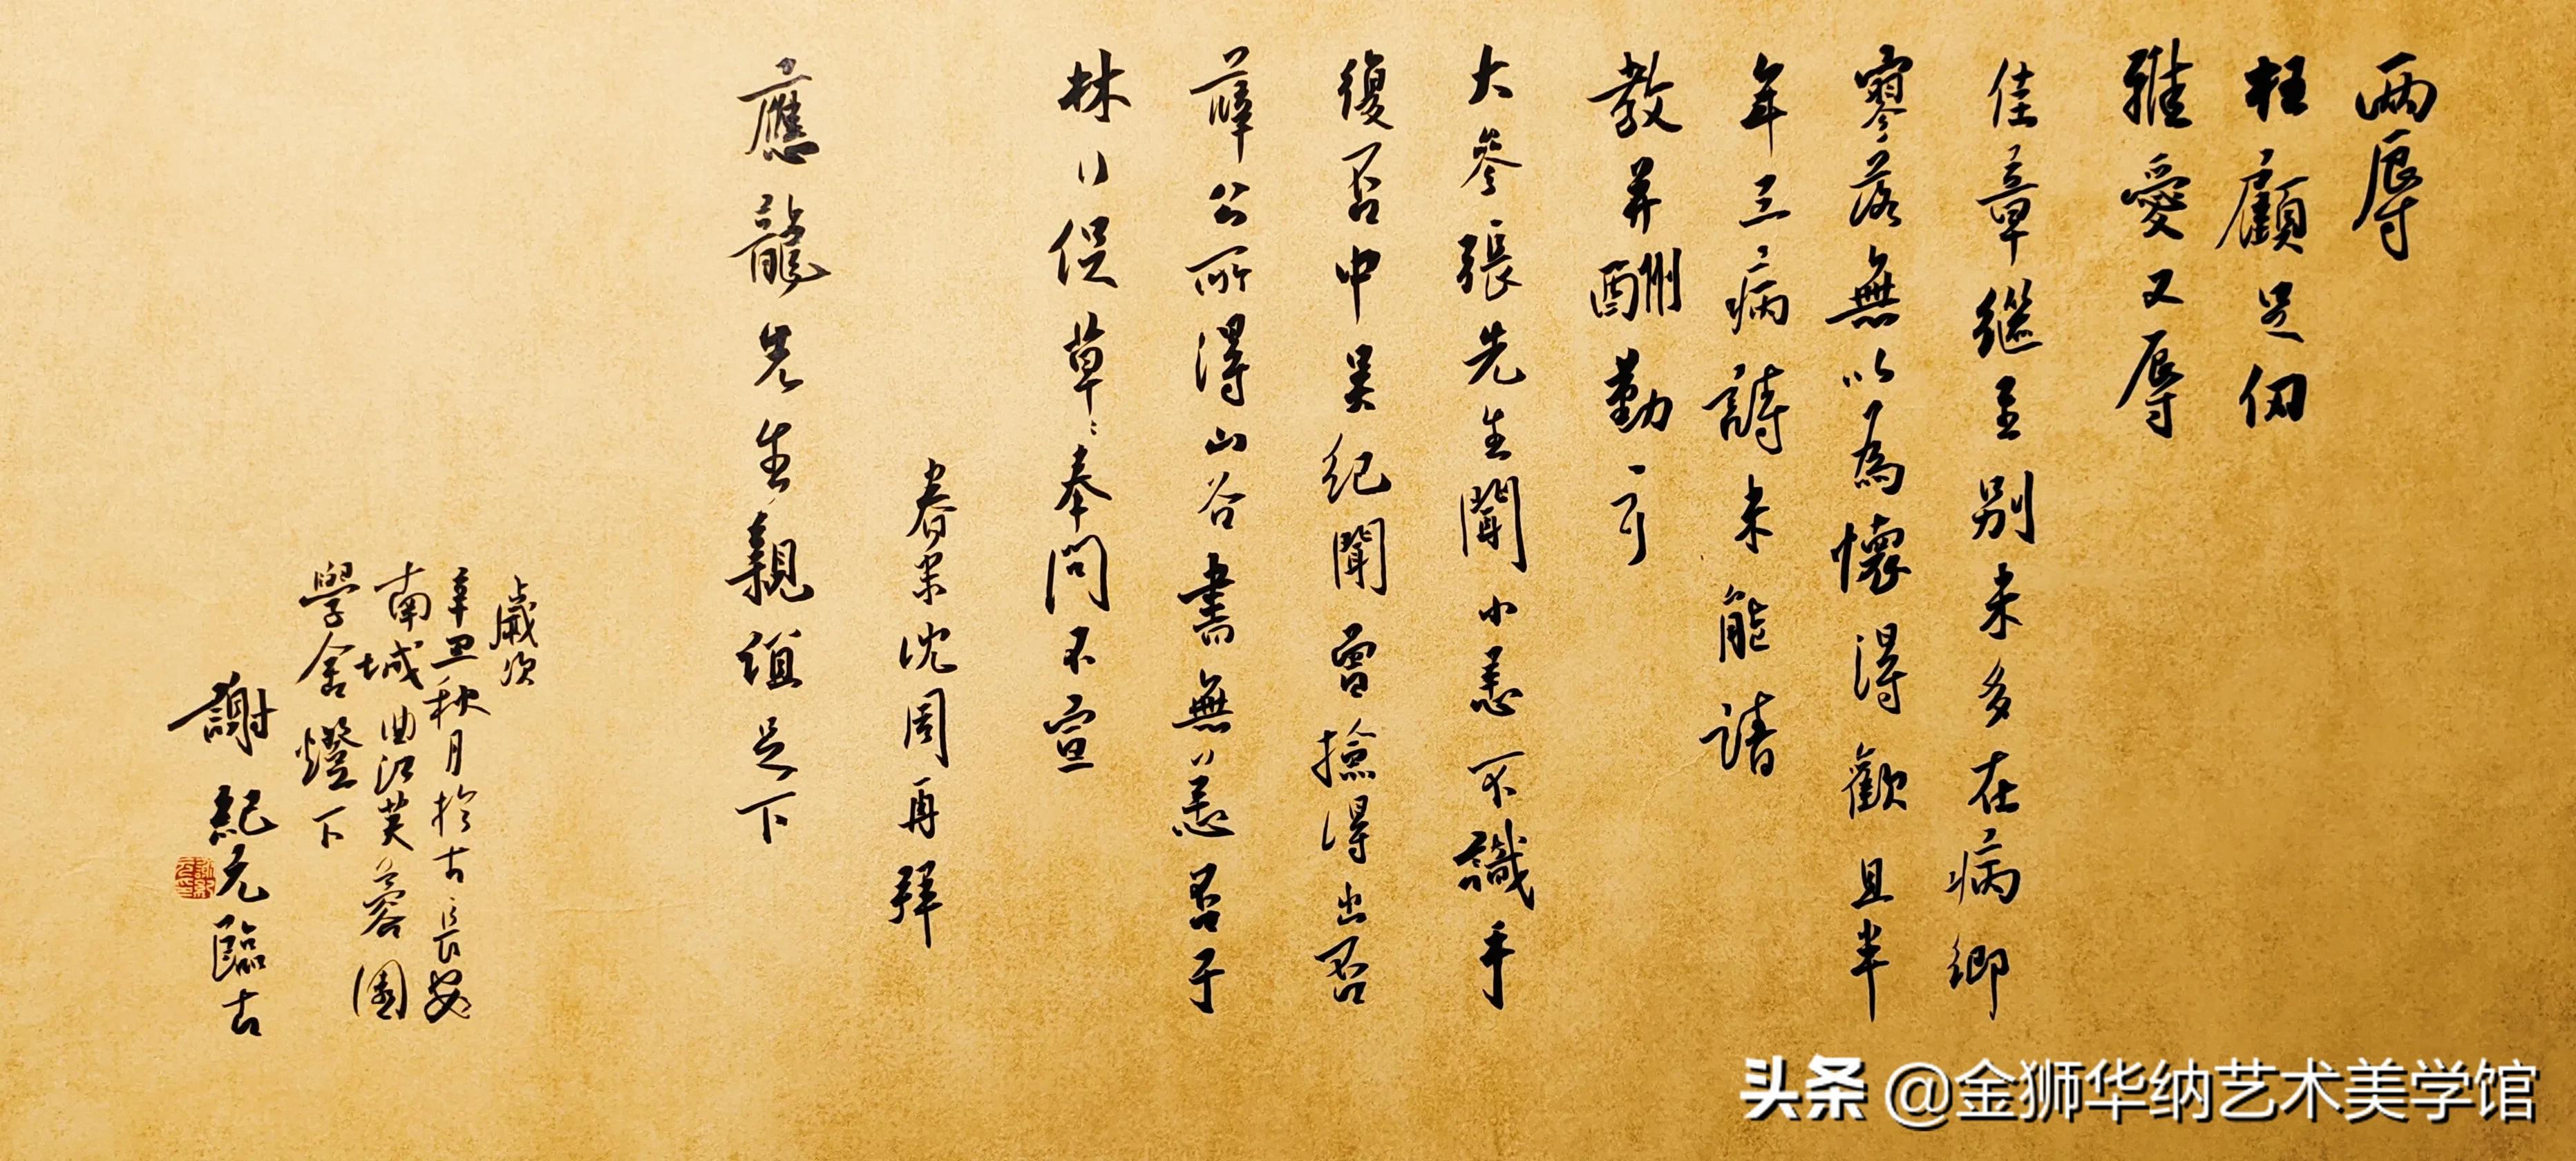 兩辱
枉顧足仞
雅愛又辱
佳章繼至别未多在病鄉
寥落無以為懷得歡且半
年三病諸未能請
教并酬勤一可
大參張先生聞小恙不識手
復否中吴紀聞曾撿得出否
薛公所得山谷書無恙否于
林行促草草奉問不宣
眷末沈周再拜
應龍先生親誼足下
歲次
辛丑秋月於古長安
南城曲江芙蓉園
學舍燈下
謝紀元臨古
头条 @金狮华纳艺术美学馆